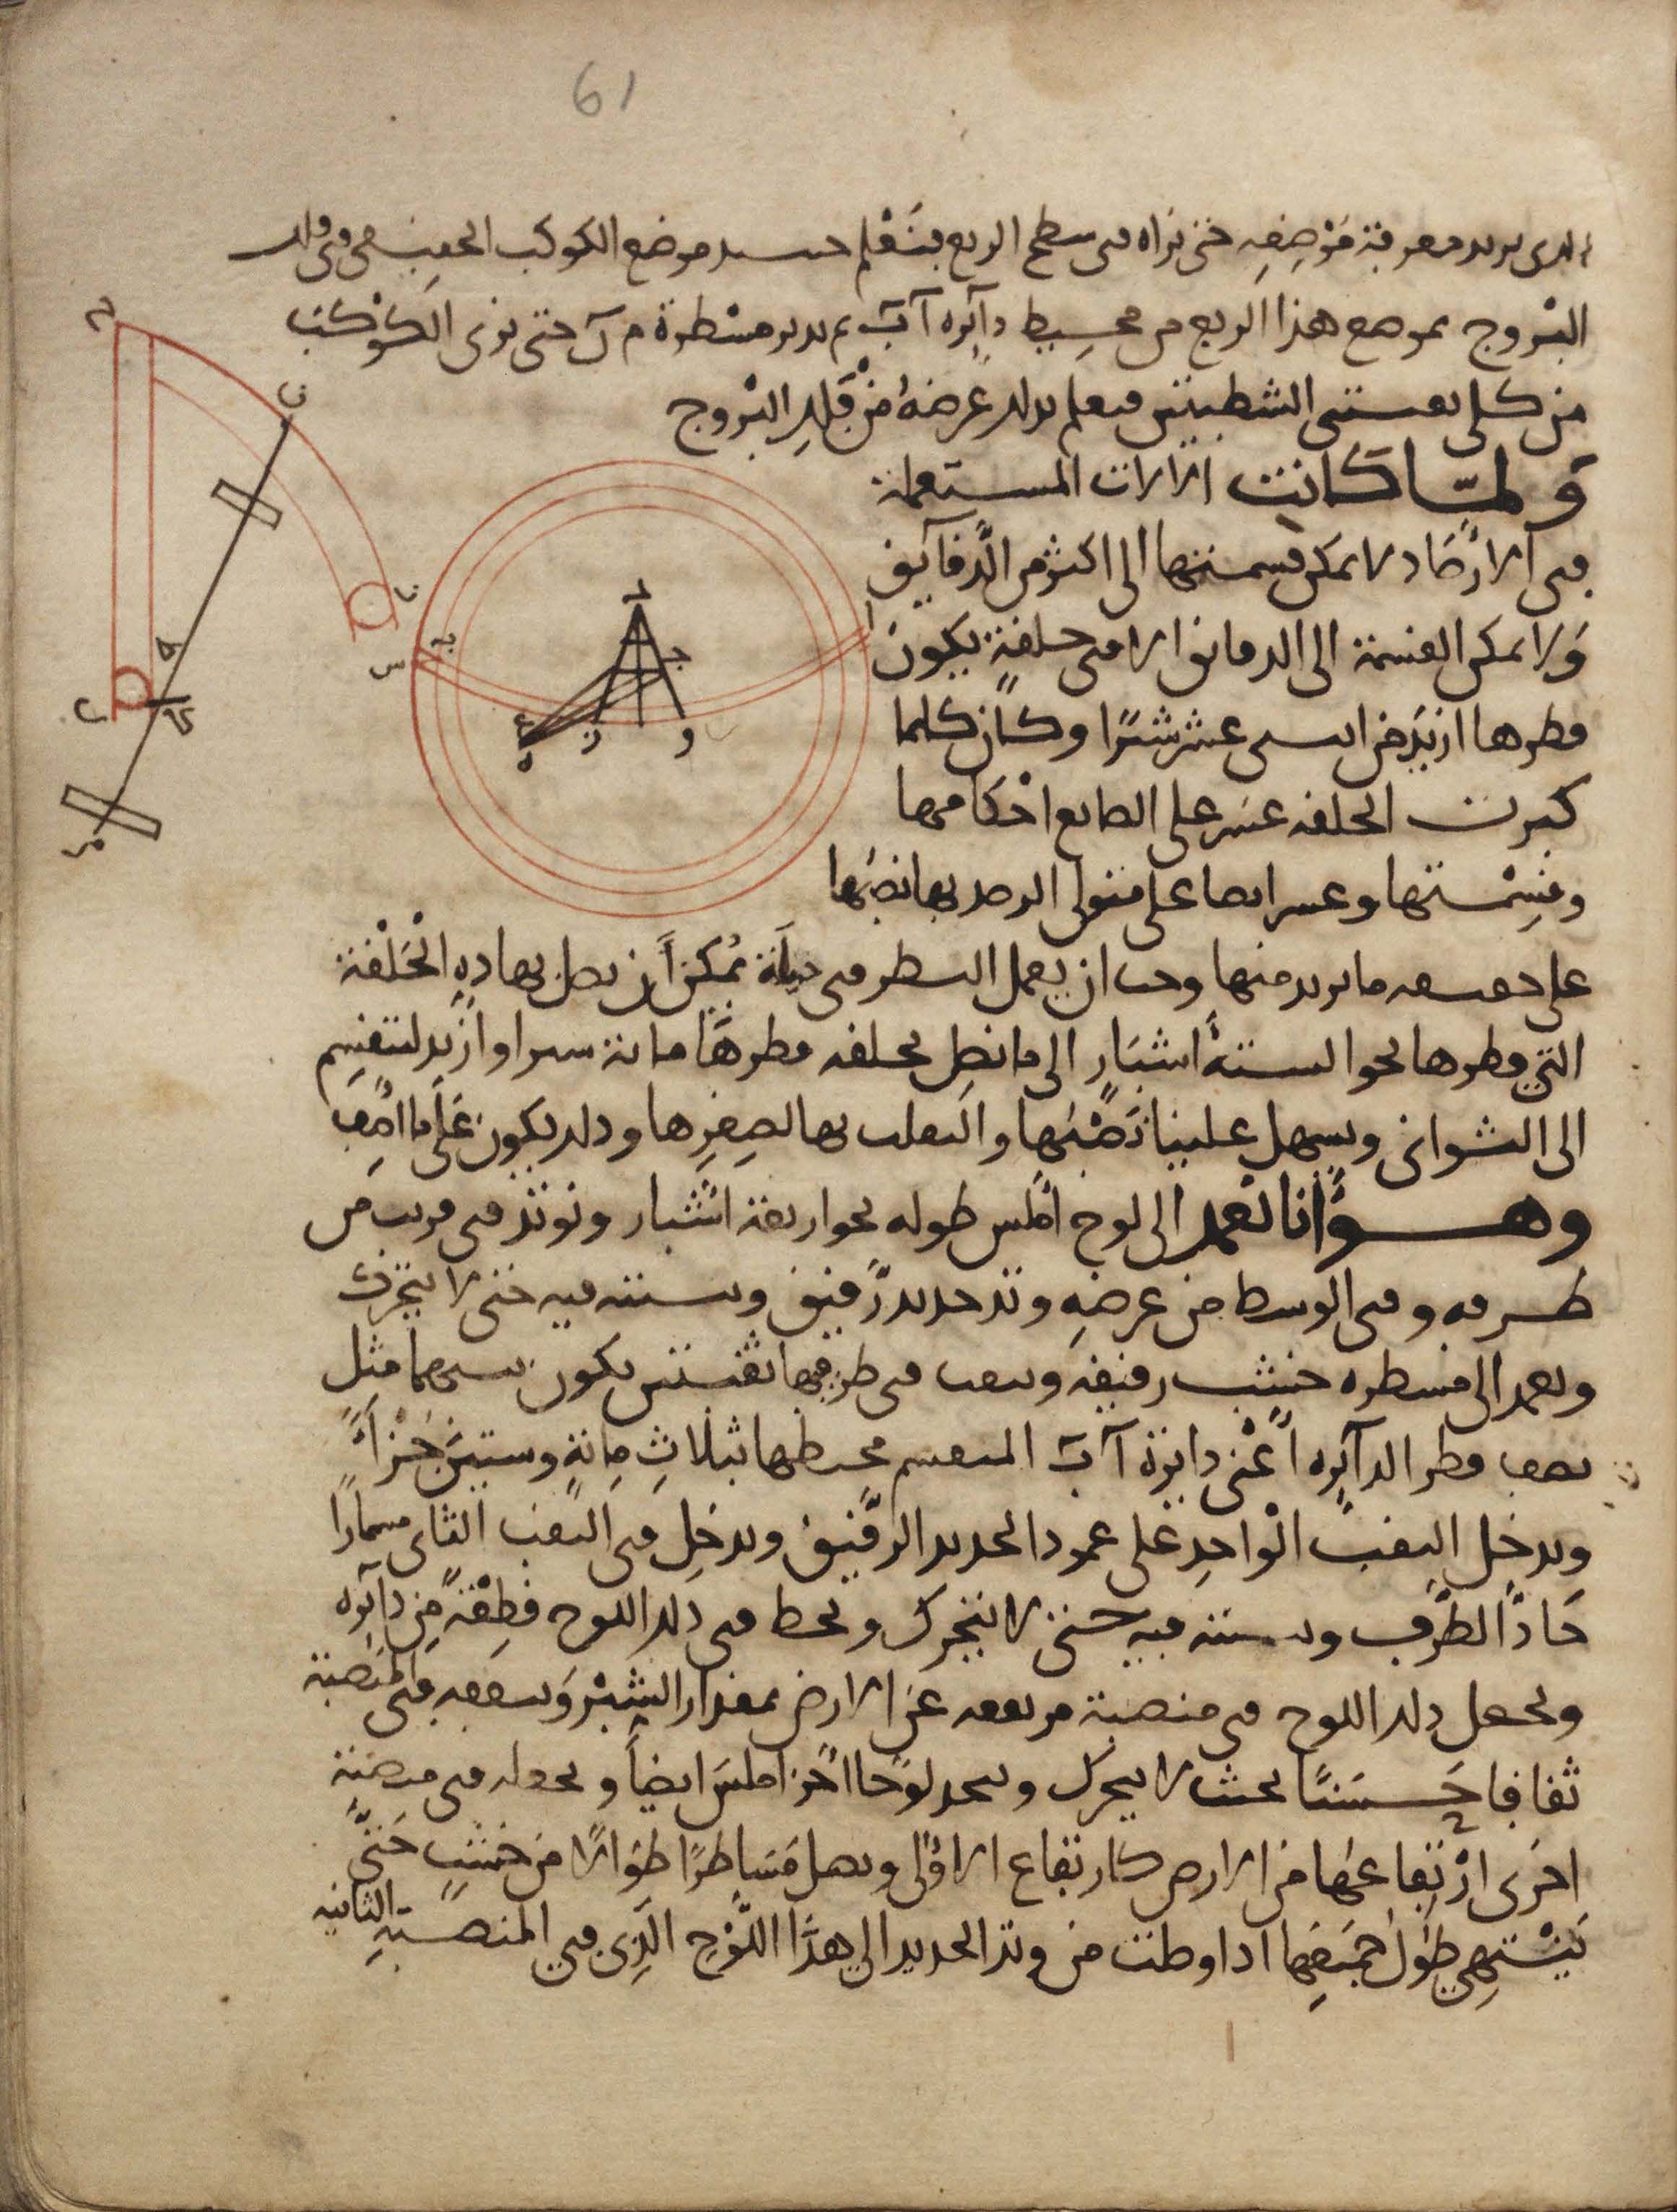 61
الدى يريد معرفة مَوْضِعِهِ حتى نراه فى سطح الربع فنعلم حينئد موضع الكوكب الحقيقى فى فلك
البُروج بموضع هذا الربع من محيط دآئره آ ب ثم ندير مسطرة م ن حتى نرى الكوكب
من كلى ثقبتى الشطبيتين فنعلم بدلك عرضه من فلك البروج
وَلمّا كانت الالات المستعملة
فى الارْصَاد لا يمكن قسمتها الى اكثر من الدّقآئق
وَلا يمكن القسمة الى الدقائق الا فى حلقةٍ يكون
قطرها ازيَد من عشر شبرًا وكان كلما
كبرت الحلقه عسر على الصانع احْكامها
وقِسْمتها وعسر ايضا على متولى الرصد بها نصبُها
على حقيقه ما يريد منها وجب ان يعمل النظر فى حيلة يُمكن أن نصل بهاده الحَلْقة
التى قطرها نحو الستة اشبَارٍ الى ما نصِل بحلقه قطرهَا مائة شبر او ازيد لتنقسِم
الى الثوانى ويسهل علينا نَصْبُها والتقلب بها لصِغرِها ودلك يكون عَلَى ما اصِف
وهــو أنا نعمد الى لوح املس طوله نحو اربعة اشبار ونوتد فى قريب من
طرفه وفى الوسط من عرضِهِ وتد حديد رَّقيق ونثبته فيه حتى لا يتحرك
ونعمد الى مسطره خشب رقيقه ونثقب فى طرفيها ثقبتين يكون بينهما مثل
نصف قطر الدآئره أعْنى دائرة آ ب المنقسم محيطها بثلاثِ مِائةٍ وستينَ جُزْاً
وندخل الثقب الْواحِد على عمود الحديد الرَّقيق وندخِل فى الثقب الثانى مسمارًا
حَادَّ الطَّرَف ونثبته فيه حتى لا يتحرك ونخط فى دلك اللوح قِطْعَةً مِن دآئره
ونجعل دلك اللوح فى منصبة مرتفعه عن الارض بمقدار الشِبْر وَنثقفه فى المنصبة
ثقافا حَسَنًا بحيث لا يتحرك ونتخد لَوْحًا اخر املسَ ايضاً ونجعله فى منصَبَة
اخرى ارْتِفاعُها من الارض كارتفاع الاولى ونصل مَسَاطرًا طِوَالًا من خشَبٍ حَتى
يَنْتهى طول جمَيعِها ادا وصلت من وتد الحديد الى هذَا اللَّوْح الَّذِى فى المنصبة الثانيه